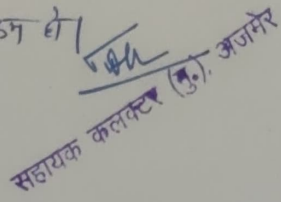 हो।
सहायक कलक्टर (मु.), अजमेर